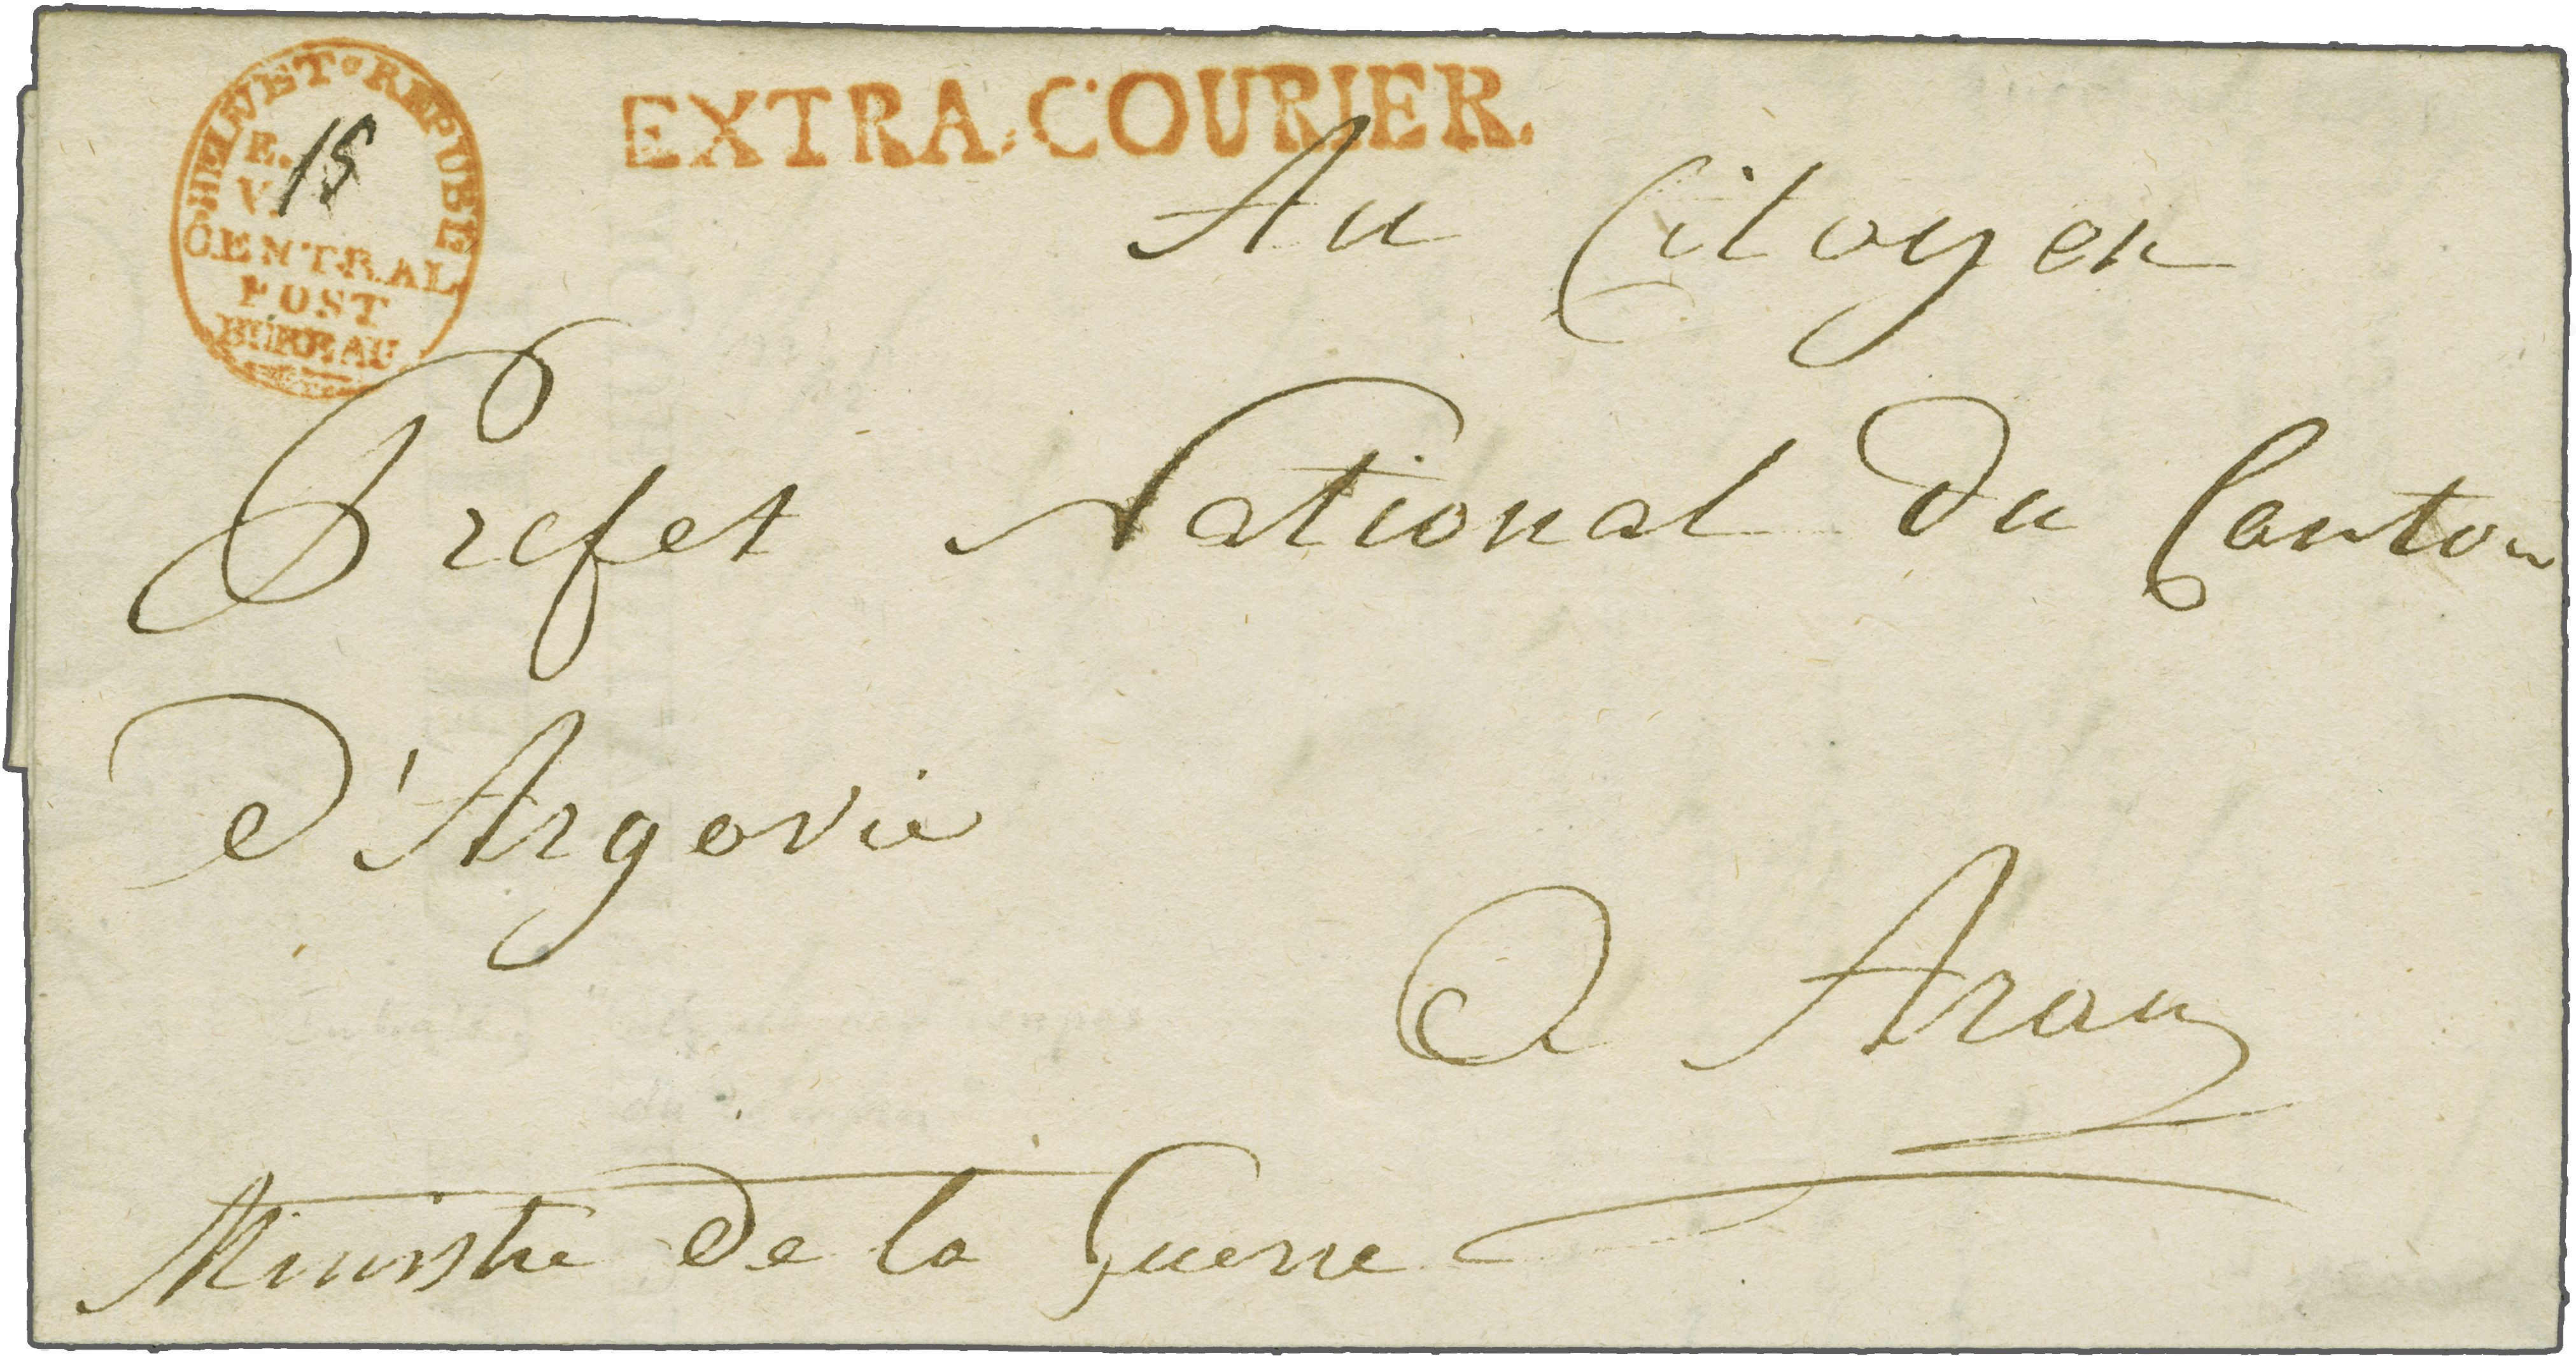 HELVET° REPUBE
E. 18
V.
CENTRAL
POST
BUREAU
EXTRA.COURIER.
Au Citoyen
Prefet National Du Canton
D'Argovie
A Arau
Ministre De la Guerre